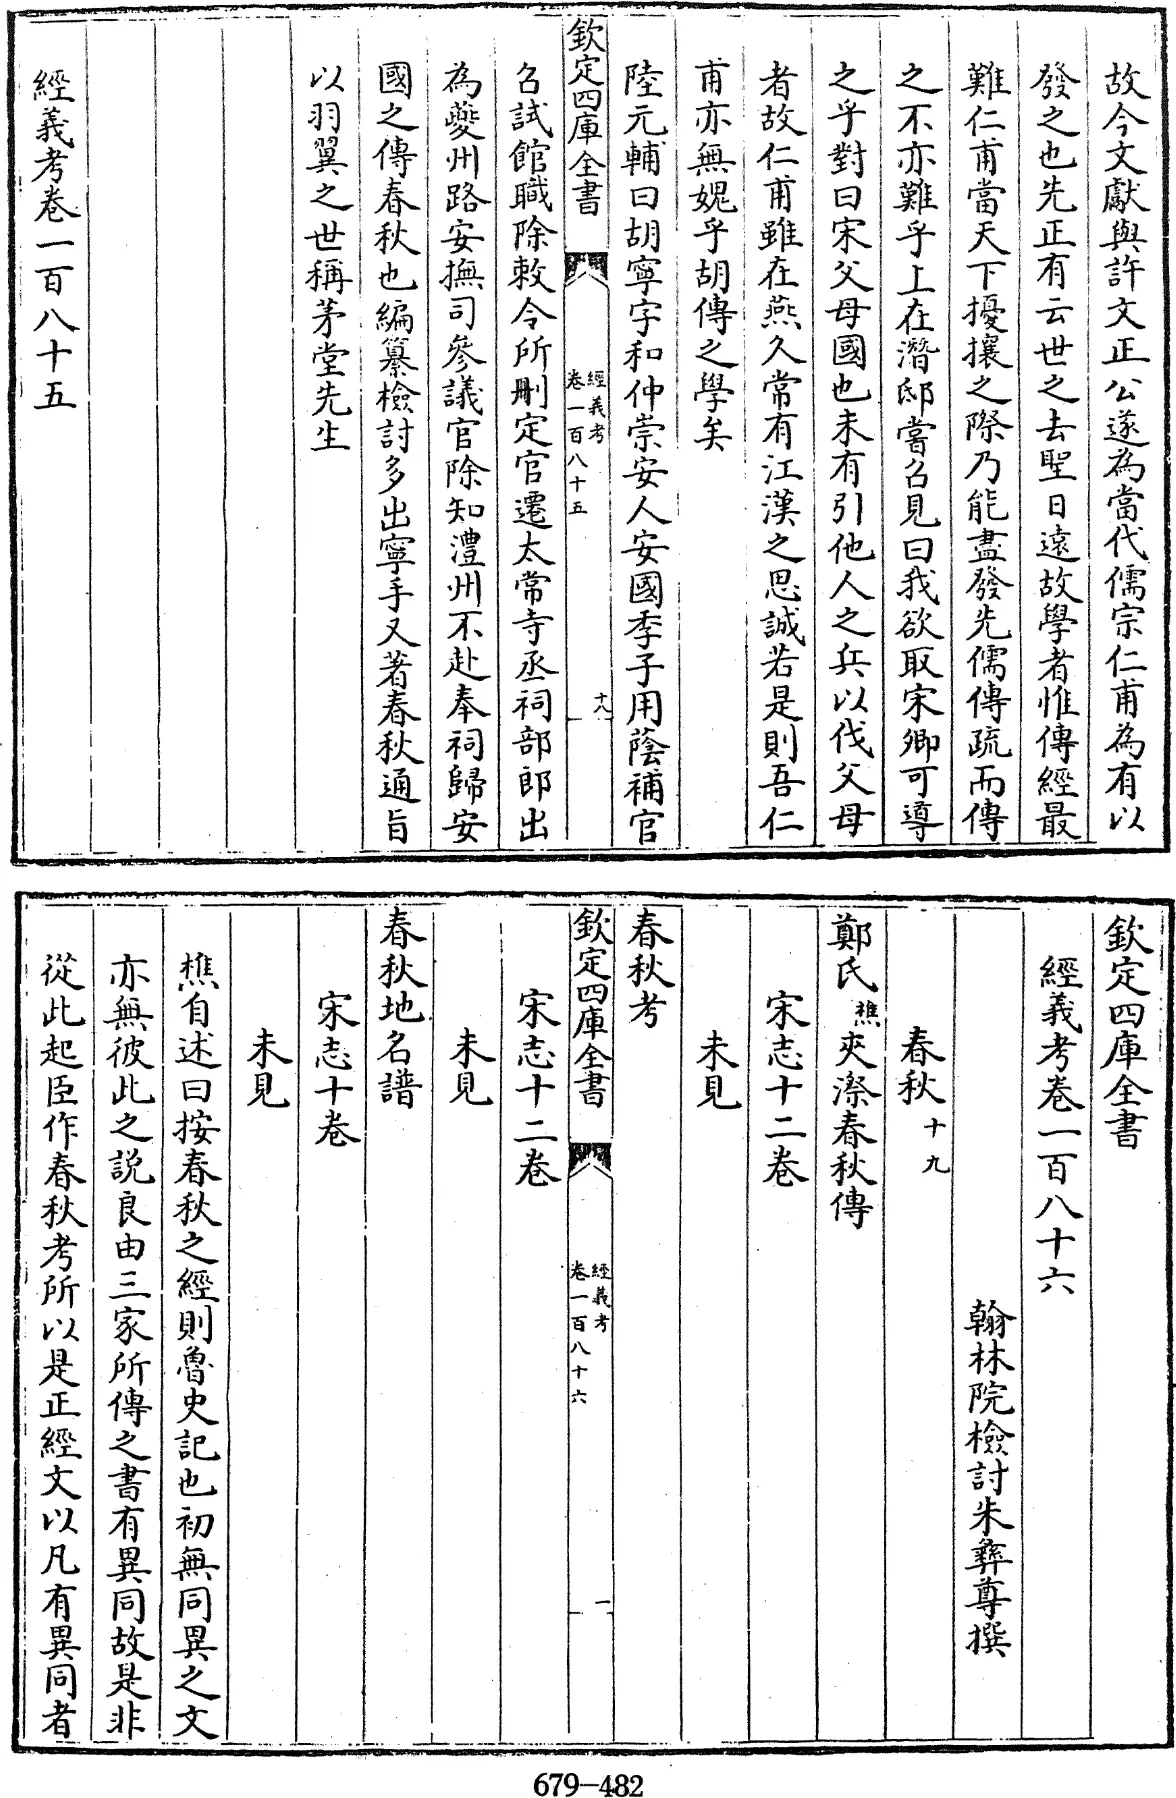 故今文獻與許文正公遂為當代儒宗仁甫為有以
發之也先正有云世之去聖日遠故學者惟傳經最
難仁甫當天下擾攘之際乃能盡發先儒傳疏而傳
之不亦難乎上在潛邸嘗召見曰我欲取宋卿可導
之乎對曰宋父母國也未有引他人之兵以伐父母
者故仁甫雖在燕久常有江漢之思誠若是則吾仁
甫亦無媿乎胡傳之學矣
陸元輔曰胡寧字和仲崇安人安國季子用蔭補官
欽定四庫全書
經義考
卷一百八十五
十八
召試館職除敕令所刪定官遷太常寺丞祠部郎出
為夔州路安撫司參議官除知澧州不赴奉祠歸安
國之傳春秋也編纂檢討多出寧手又著春秋通旨
以羽翼之世稱茅堂先生
經義考卷一百八十五
欽定四庫全書
經義考卷一百八十六
翰林院檢討朱彝尊撰
春秋十九
鄭氏樵夾漈春秋傳
宋志十二卷
未見
春秋考
欽定四庫全書
經義考
卷一百八十六
一
宋志十二卷
未見
春秋地名譜
宋志十卷
未見
樵自述曰按春秋之經則魯史記也初無同異之文
亦無彼此之説良由三家所傳之書有異同故是非
從此起臣作春秋考所以是正經文以凡有異同者
679-482